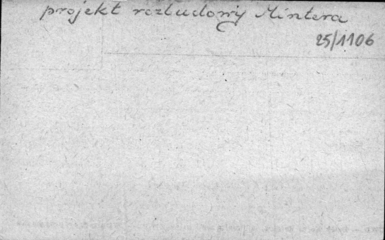 projekt rozbudowy Mintera
25/1106